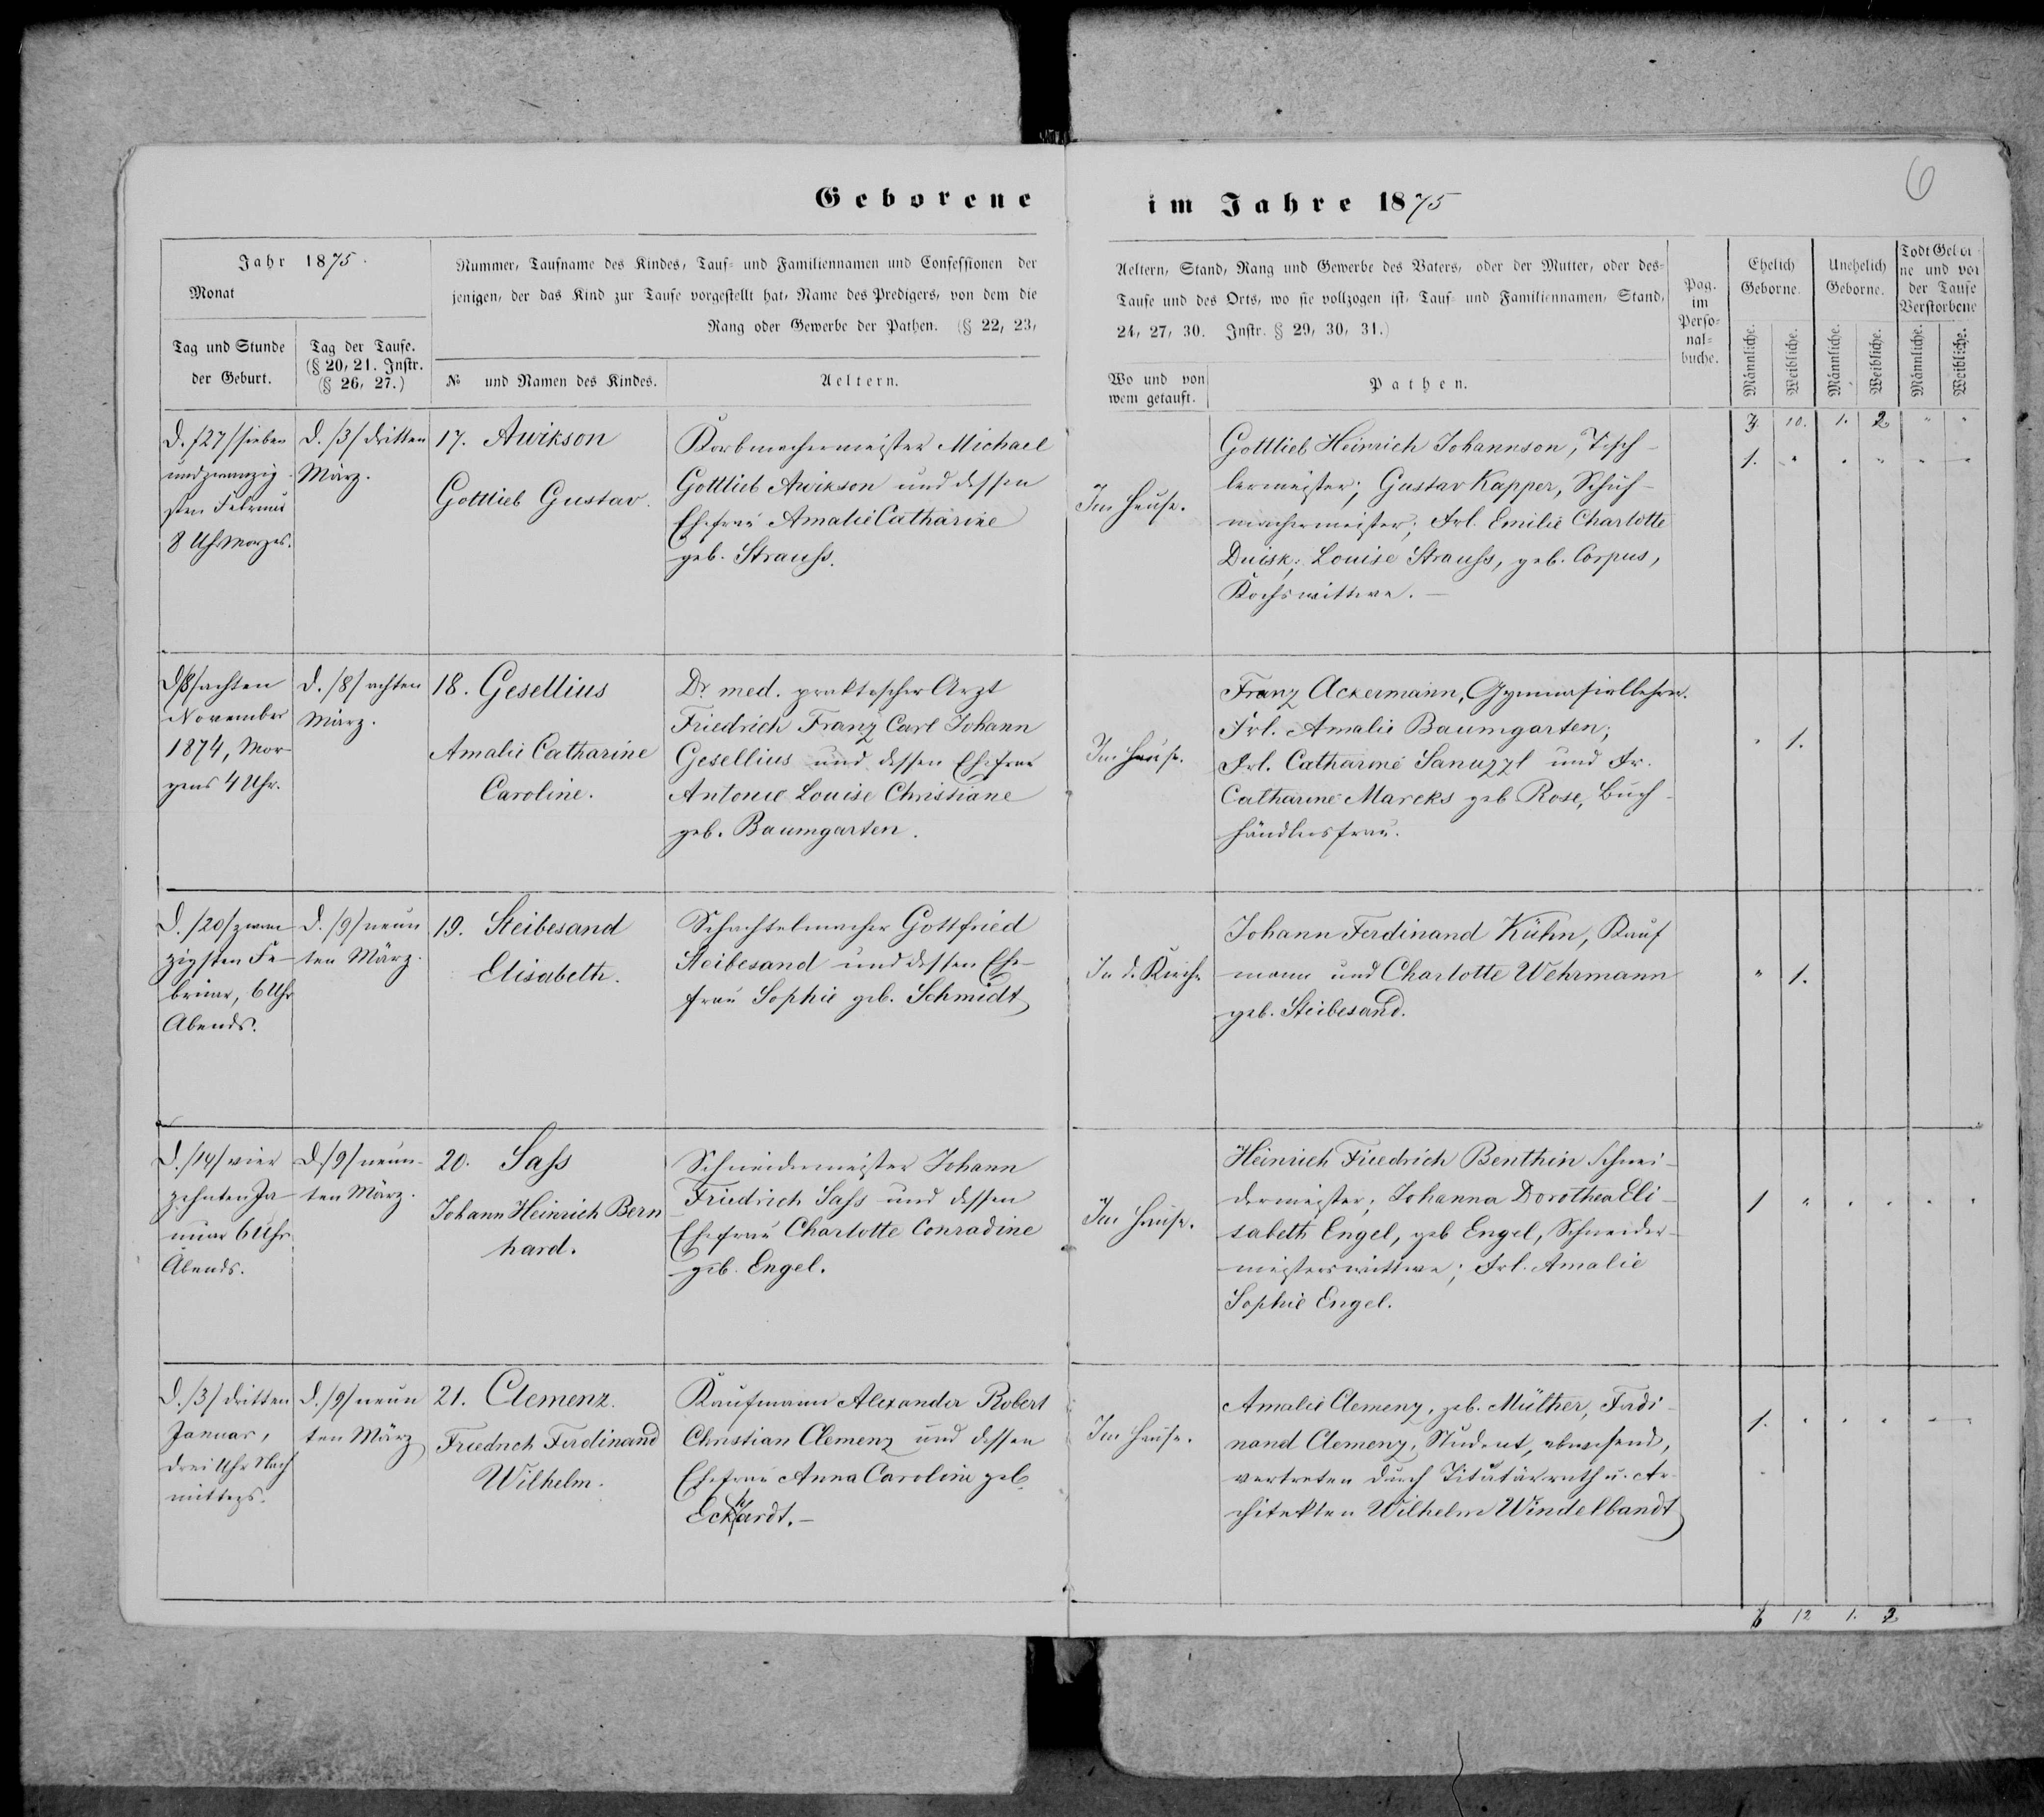 6
Geborene im Jahre 1875
Jahr 1875.
Monat
Tag und Stunde
der Geburt.
Tag der Taufe.
(§ 20, 21. Instr.
(§ 26, 27.)
Nummer, Taufname des Kindes, Tauf- und Familiennamen und Confessionen der
jenigen, der das Kind zur Taufe vorgestellt hat, Name des Predigers, von dem die
Rang oder Gewerbe der Pathen. (§ 22, 23,
№ und Namen des Kindes.
Aeltern.
Aeltern, Stand, Rang und Gewerbe des Vaters, oder der Mutter, oder des-
Taufe und des Orts, wo sie vollzogen ist, Tauf- und Familiennamen, Stand,
24, 27, 30. Instr. § 29, 30, 31.)
Wo und von
wem getauft.
Pathen.
Pag.
im
Perso-
nal-
buche.
Ehelich
Geborne.
Unehelich
Geborne.
Todt Gebor-
ne und vor
der Taufe
Verstorbene
Männliche.
Weibliche.
Männliche.
Weibliche.
Männliche.
Weibliche.
3. 10. 1. 2 " "
D. /27/ sieben
undzwanzig-
sten Februar
8 Uhr Morgs.
D. /3/ dritten
März.
17. Awikson
Gottlieb Gustav.
Korbmachermeister Michael
Gottlieb Awikson und dessen
Ehefrau Amalie Catharine
geb. Strauss.
Im Hause.
Gottlieb Heinrich Johannson, Tisch-
lermeister; Gustav Kapper, Schuh-
machermeister; Frl. Emilie Charlotte
Duisk; Louise Strauss, geb. Corpus,
Kochswittwe. —
1. " " " " "
D /8/ achten
November
1874, Mor-
gens 4 Uhr.
D. /8/ achten
März.
18. Gesellius
Amalie Catharine
Caroline.
Dr. med. praktischer Arzt
Friedrich Franz Carl Johann
Gesellius und dessen Ehefrau
Antonie Louise Christiane
geb. Baumgarten.
Im Hause.
Franz Ackermann, Gymnasiallehrer.
Frl. Amalie Baumgarten;
Frl. Catharine Sanuzzl und Fr.
Catharine Marcks geb Rose, Buch-
händlersfrau.
" 1.
D. /20/ zwan
zigsten Fe-
bruar, 6 Uhr
Abends.
D. /9/ neun
ten März.
19. Steibesand
Elisabeth.
Schachtelmacher Gottfried
Steibesand und dessen Ehe-
frau Sophie geb. Schmidt
In d. Kirche
Johann Ferdinand Kühn, Kauf
mann und Charlotte Wehrmann
geb. Steibesand.
" 1.
D. /14/ vier
zehnten Ja-
nuar 6 Uhr
Abends.
D /9/ neun-
ten März.
20. Sass
Johann Heinrich Bern
hard.
Schneidermeister Johann
Friedrich Sass und dessen
Ehefrau Charlotte Conradine
geb. Engel.
Im Hause.
Heinrich Friedrich Benthin Schnei-
dermeister; Johanna Dorothea Eli-
sabeth Engel, geb Engel, Schneider-
meisterswittwe; Frl. Amalie
Sophie Engel.
1 " " " " "
D. /3/ dritten
Januar,
drei Uhr Nach
mittags.
D. /9/ neun
ten März
21. Clemenz.
Friedrich Ferdinand
Wilhelm.
Kaufmann Alexander Robert
Christian Clemenz und dessen
Ehefrau Anna Caroline geb
Eckhardt. —
Im Hause.
Amalie Clemenz, geb. Müther, Ferdi-
nand Clemenz, Student, abwesend,
vertreten durch Titulärrath u. Ar-
chitekten Wilhelm Windelbandt
1. " " " " "
6 12 1. 2